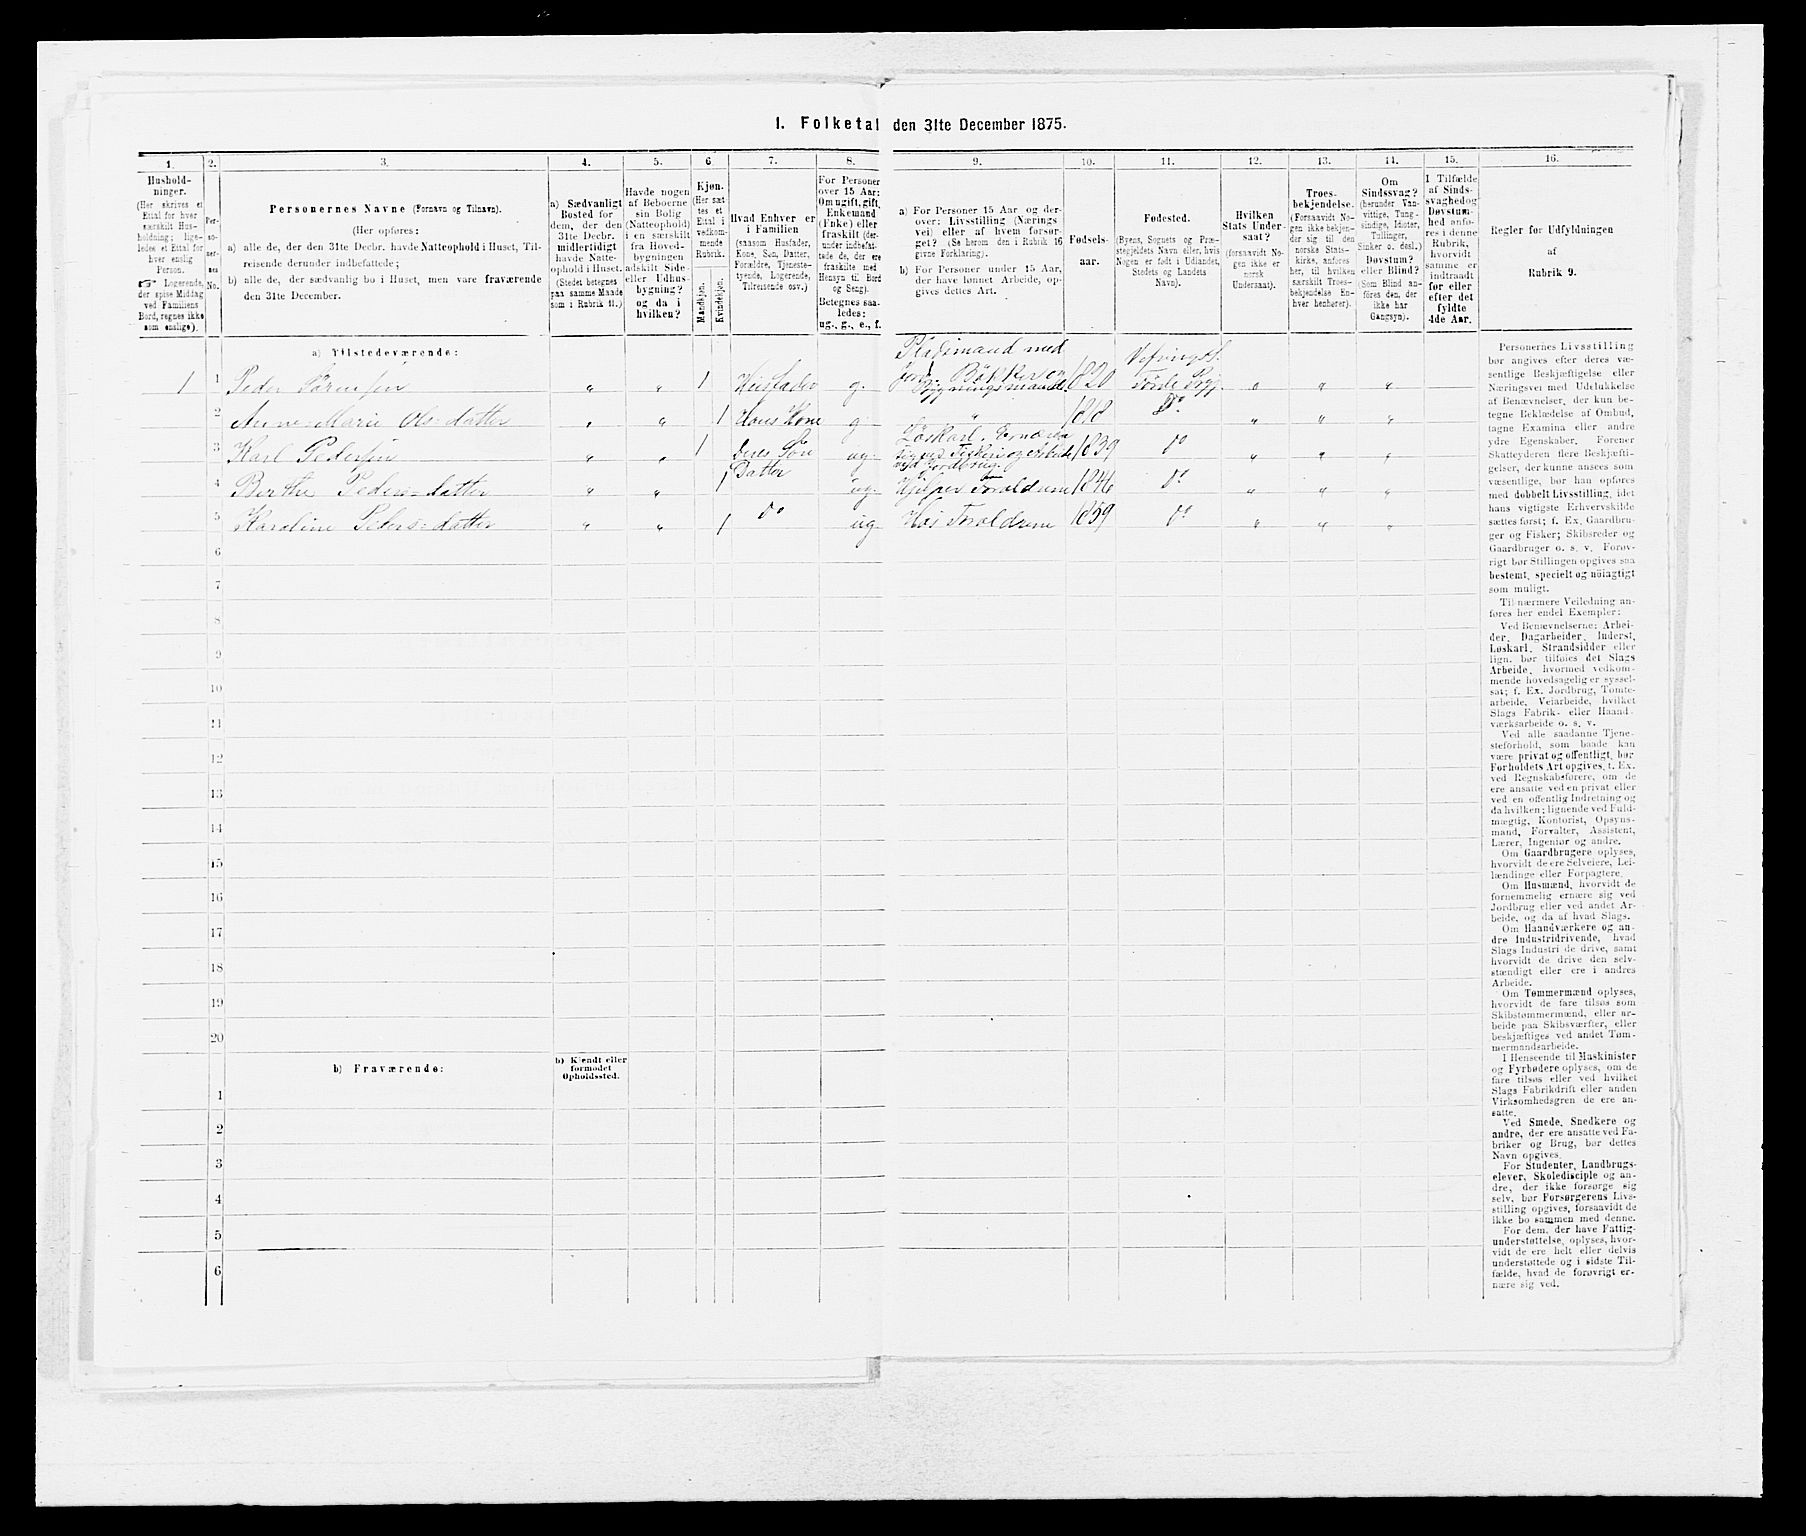 1. Folketal den 31te December 1875.
1. 2. 3. 4. 5. 6 7. 8. 9. 10. 11. 12. 13. 14. 15. 16.
Hushold-
ninger.
(Her skrives et
Ettal for hver
særskilt Hus-
holdning; lige-
ledes et Ettal for
hver enslig
Person.
☞ Logerende,
der spise Middag
ved Familiens
Bord, regnes ikke
som enslige).
Per-
so-
ner-
nes
No.
Personernes Navne (Fornavn og Tilnavn).
(Her opføres:
a) alle de, der den 31te Decbr. havde Natteophold i Huset, Til-
reisende derunder indbefattede;
b) alle de, der sædvanlig bo i Huset, men vare fraværende
den 31te December.
a) Sædvanligt
Bosted for
dem, der den
31te Decbr.
midlertidigt
havde Natte-
ophold i Huset.
(Stedet betegnes
paa samme Maade
som i Rubrik 11.)
Havde nogen
af Beboerne
sin Bolig
(Natteophold)
i en særskilt
fra Hoved-
bygningen
adskilt Side-
eller Udhus-
bygning?
og da i
hvilken?
Kjøn.
(Her sæt
tes et
Ettal i
vedkom-
mende
Rubrik.
Mandkjøn.
Kvindekjøn.
Hvad Enhver er
i Familien
(saasom Husfader,
Kone, Søn, Datter,
Forældre, Tjeneste-
tyende, Logerende,
Tilreisende osv.)
For Personer
over 15 Aar:
Om ugift, gift,
Enkemand
(Enke) eller
fraskilt (der-
under indbefat-
tede de, der ere
fraskilte med
Hensyn til Bord
og Seng).
Betegnes saa-
ledes:
ug., g., e., f.
a) For Personer 15 Aar og der-
over: Livsstilling (Nærings
vei) eller af hvem forsør-
get? (Se herom den i Rubrik 16
givne Forklaring).
b) For Personer under 15 Aar,
der have lønnet Arbeide, op-
gives dettes Art.
Fødsels-
aar.
Fødested.
(Byens, Sognets og Præ-
stegjeldets Navn eller, hvis
Nogen er født i Udlandet,
Stedets og Landets
Navn).
Hvilken
Stats Under-
saat?
(forsaavidt No-
gen ikke er
norsk
Undersaat).
Troes-
bekjendelse.
(Forsaavidt No-
gen ikke bekjen-
der sig til den
norske Stats-
kirke, anføres
her, til hvilken
særskilt Troes-
bekjendelse En-
hver henhører).
Om
Sindssvag?
(herunder Van-
vittige, Tung-
sindige, Idioter,
Tullinger,
Sinker o. desl.)
Døvstum?
eller Blind?
(Som Blind an-
føres den, der
ikke har
Gangsyn).
I Tilfælde
af Sinds-
svaghed og
Døvstum-
hed anfø-
res i denne
Rubrik,
hvorvidt
samme er
indtraadt
før eller
efter det
fyldte
4de Aar.
Regler for Udfyldningen
af
Rubrik 9.
a) Tilstedeværende:
1 1 Peder Sørensen " " 1 Husfader g. Pladsmand med Jord. Bøkker og Bygningsmand 1820 Førde Prgj. " " "
2 Anne Marie Ols datter " " 1 Hans Kone g. " 1818 Do. " " "
3 Karl Pedersen " " 1 Deres Søn ug. Løskarl. 1859 Do " " "
4 Berthe Peders datter " " 1 Datter ug. Hjelper Foraldrene 1846 Do " " "
5 Karoline Peders datter " " 1 Do ug Hos Foraldrene 1859 Do " " "
6
7
8
9
10
11
12
13
14
15
16
17
18
19
20
b) Fraværende:
b) Kjendt eller
formodet
Opholdssted.
1
2
3
4
5
6
Personernes Livsstilling
bør angives efter deres væ-
sentlige Beskjæftigelse eller
Næringsvei med Udelukkelse
af Benævnelser, der kun be-
tegne Beklædelse af Ombud,
tagne Examina eller andre
ydre Egenskaber. Forener
Skatteyderen flere Beskjæfti-
gelser, der kunne ansees som
væsentlige, bør han opføres
med dobbelt Livsstilling, idet
hans vigtigste Erhvervskilde
sættes først; f. Ex. Gaardbru-
ger og Fisker; Skibsreder og
Gaardbruger o. s. v. Forøv-
rigt bør Stillingen opgives saa
bestemt, specielt og nøiagtigt
som muligt.
Til nærmere Veiledning an-
føres her endel Exempler:
Ved Benævnelserne: Arbei-
der, Dagarbeider, Inderst,
Løskarl, Strandsidder eller
lign. bør tilføies det Slags
Arbeide, hvormed vedkom-
mende hovedsagelig er syssel-
sat; f. Ex. Jordbrug, Tomte-
arbeide, Veiarbeide, hvilket
Slags Fabrik- eller Haand-
værksarbeide o. s. v.
Ved alle saadanne Tjene-
steforhold, som baade kan
være privat og offentligt, bør
Forholdets Art opgives, f. Ex.
ved Regnskabsførere, om de
ere ansatte ved en privat eller
ved en offentlig Indretning og
da hvilken; lignende ved Fuld-
mægtig, Kontorist, Opsyns-
mand, Forvalter, Assistent,
Lærer, Ingeniør og andre.
Om Gaardbrugere oplyses,
hvorvidt de ere Selveiere, Lei-
lændinge eller Forpagtere.
Om Husmænd, hvorvidt de
fornemmelig ernære sig ved
Jordbrug eller ved andet Ar-
beide, og da af hvad Slags.
Om Haandværkere og an-
dre Industridrivende, hvad
Slags Industri de drive, samt
hvorvidt de drive den selv-
stændigt eller ere i andres
Arbeide.
Om Tømmermænd oplyses,
hvorvidt de fare tilsøs som
Skibstømmermænd, eller ar-
beide paa Skibsværfter, eller
beskjæftiges ved andet Tøm-
mermandsarbeide.
I Henseende til Maskinister
og Fyrbødere oplyses, om de
fare tilsøs eller ved hvilket
Slags Fabrikdrift eller anden
Virksomhedsgren de ere an-
satte.
Ved Smede, Snedkere og
andre, der ere ansatte ved Fa-
briker og Brug, bør dettes
Navn opgives.
For Studenter, Landbrugs-
elever, Skoledisciple og an-
dre, der ikke forsørge sig
selv, bør Forsørgerens Livs-
stilling opgives, forsaavidt de
ikke bo sammen med denne.
For dem, der have Fattig-
understøttelse, oplyses, hvor-
vidt de ere helt eller delvis
understøttede og i sidste Til-
fælde, hvad de forøvrigt er-
nære sig ved.